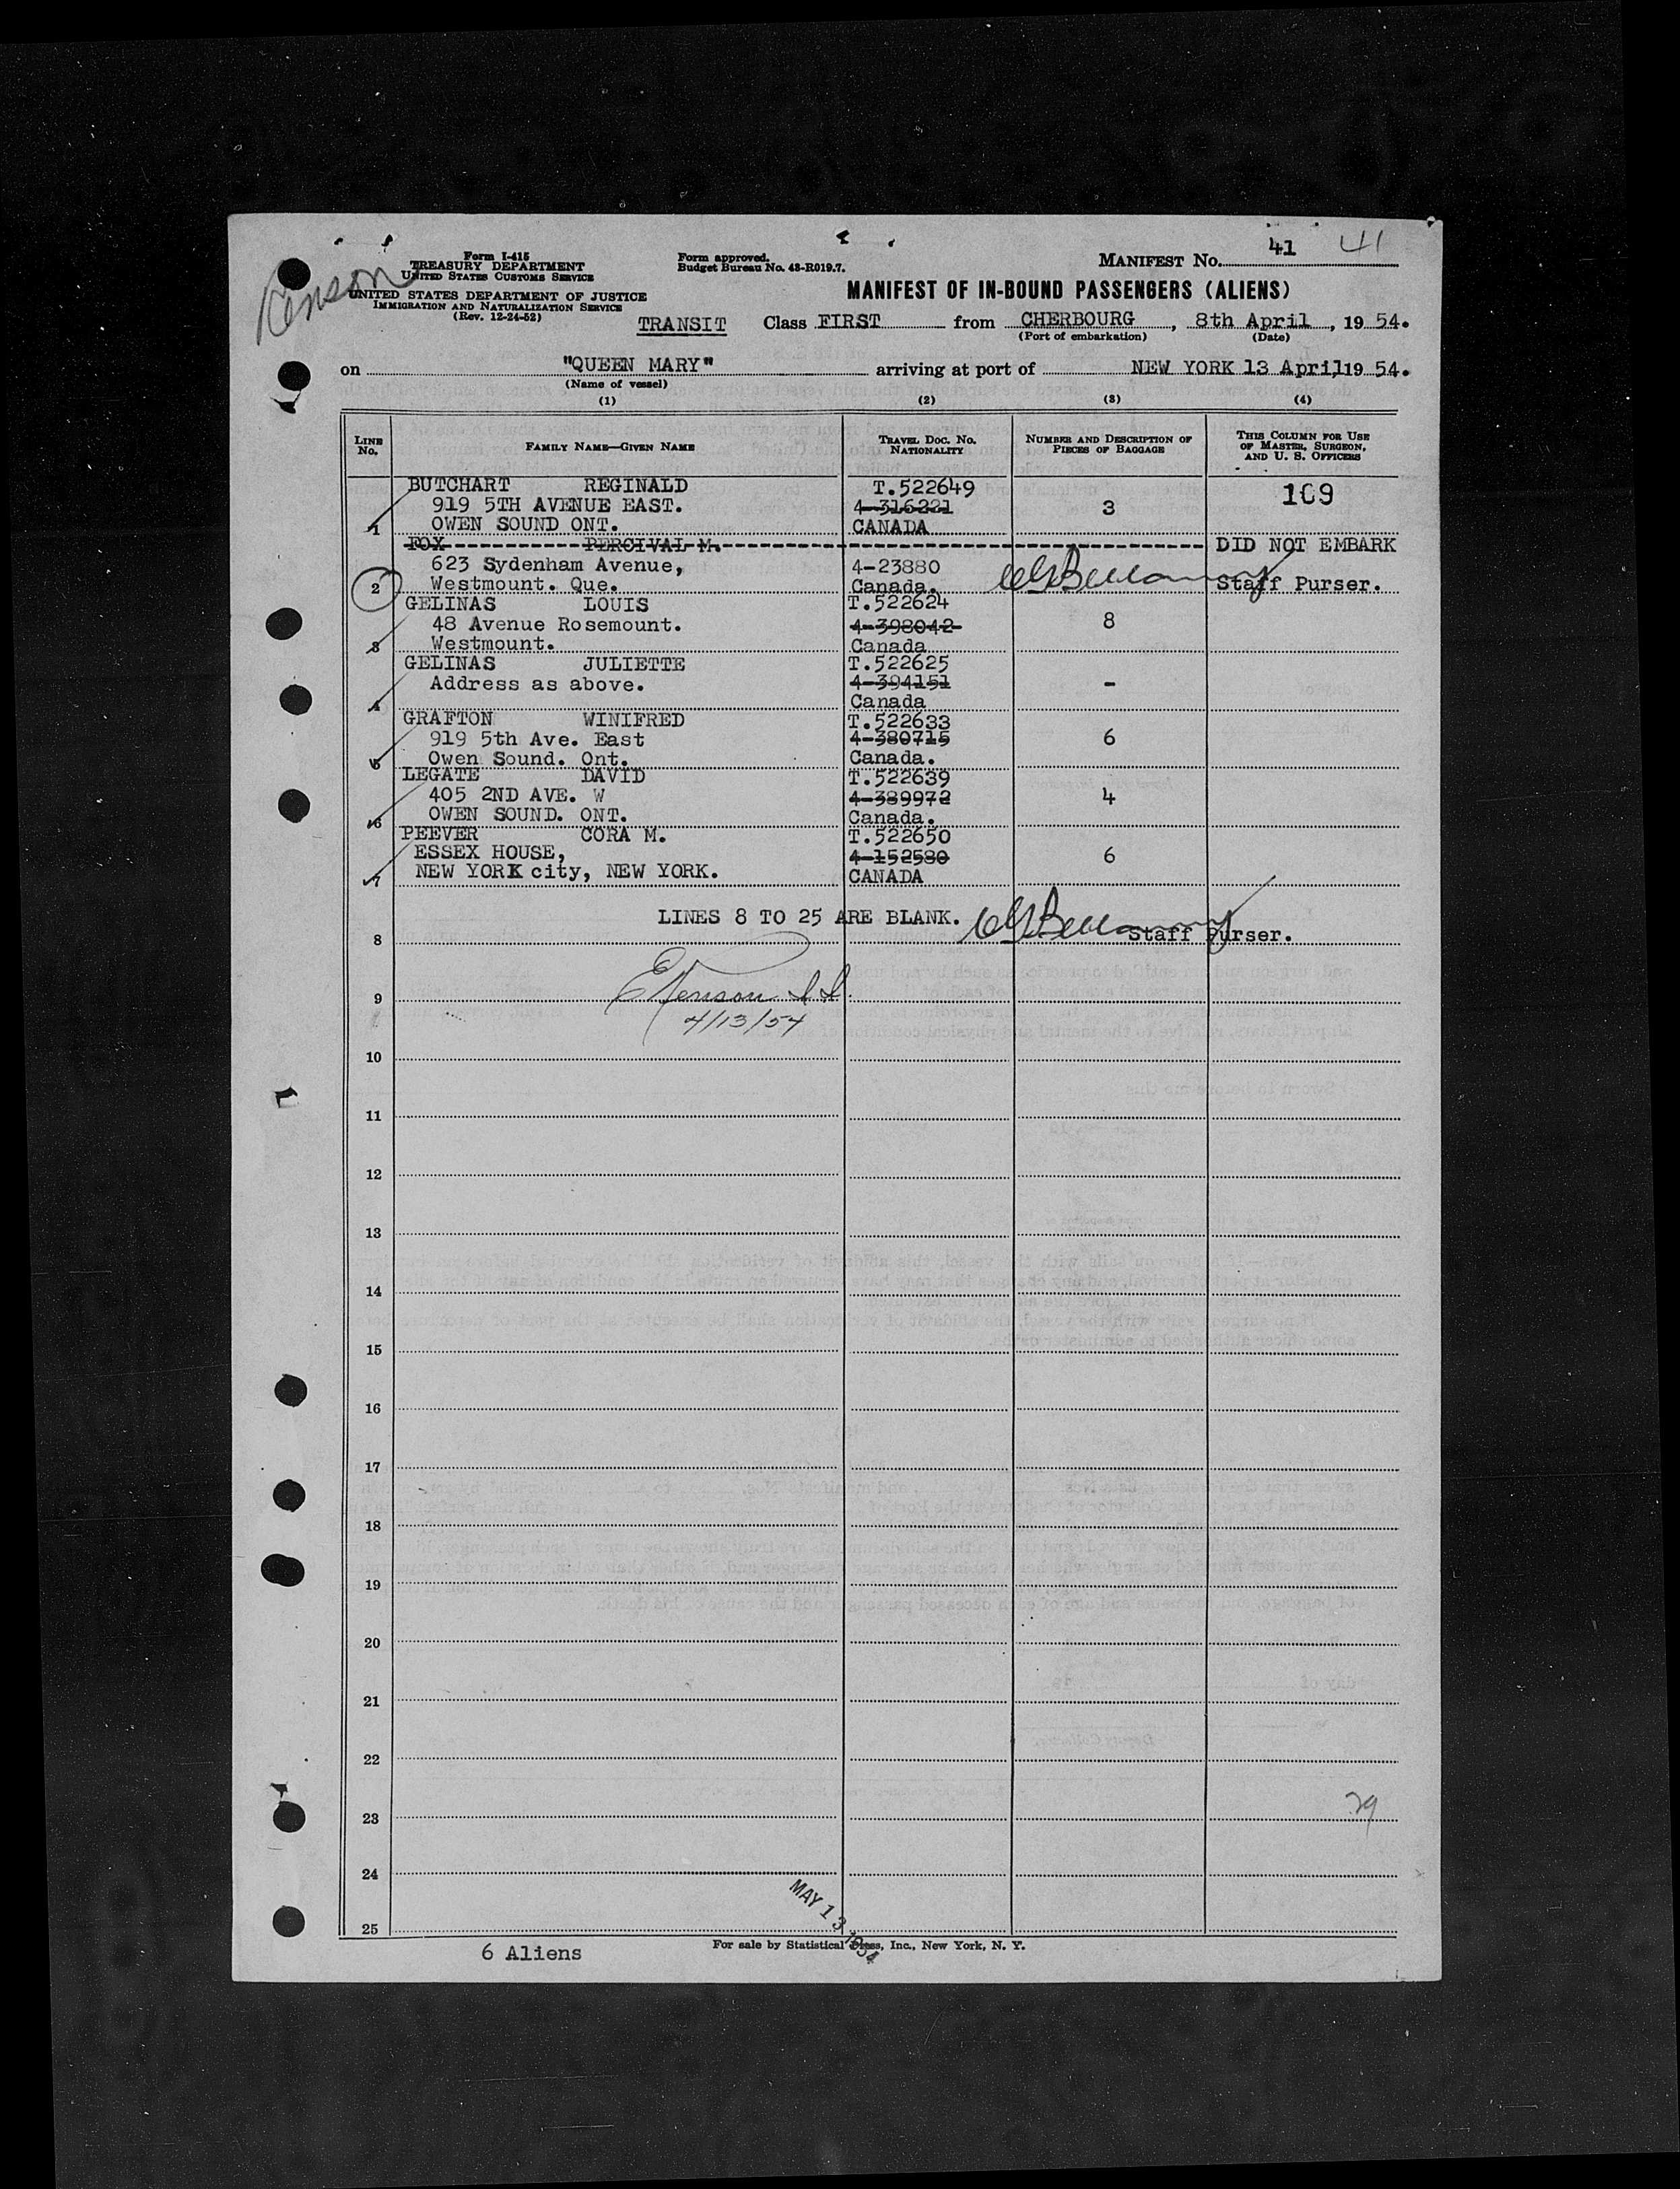 Form I-415
TREASURY DEPARTMENT
UNITED STATES CUSTOMS SERVICE
UNITED STATES DEPARTMENT OF JUSTICE
IMMIGRATION AND NATURALIZATION SERVICE
(Rev. 12-24-52)
Form approved.
Budget Bureau No. 43-R019.7.
MANIFEST No. 41 41
MANIFEST OF IN-BOUND PASSENGERS (ALIENS)
TRANSIT Class FIRST from CHERBOURG, 8th April, 19 54.
(Port of embarkation) (Date)
on "QUEEN MARY" arriving at port of NEW YORK 13 April, 19 54.
(Name of vessel)
(1) (2) (3) (4)
LINE No. FAMILY NAME—GIVEN NAME TRAVEL DOC. No. NATIONALITY NUMBER AND DESCRIPTION OF PIECES OF BAGGAGE THIS COLUMN FOR USE OF MASTER, SURGEON, AND U. S. OFFICERS
BUTCHART REGINALD T.522649 109
919 5TH AVENUE EAST. 4-316221 3
1 OWEN SOUND ONT. CANADA
FOX PERCIVAL M. DID NOT EMBARK
623 Sydenham Avenue, 4-23880
2 Westmount. Que. Canada. Staff Purser.
GELINAS LOUIS T.522624
48 Avenue Rosemount. 4-398042 8
3 Westmount. Canada
GELINAS JULIETTE T.522625
Address as above. 4-394151 -
4 Canada
GRAFTON WINIFRED T.522633
919 5th Ave. East 4-380715 6
5 Owen Sound. Ont. Canada.
LEGATE DAVID T.522639
405 2ND AVE. W 4-389972 4
6 OWEN SOUND. ONT. Canada.
PEEVER CORA M. T.522650
ESSEX HOUSE, 4-152580 6
7 NEW YORK city, NEW YORK. CANADA
LINES 8 TO 25 ARE BLANK.
8 Staff Purser.
9
4/13/54
10
11
12
13
14
15
16
17
18
19
20
21
22
23 29
24
25
MAY 13 1954
6 Aliens
For sale by Statistical Press, Inc., New York, N. Y.